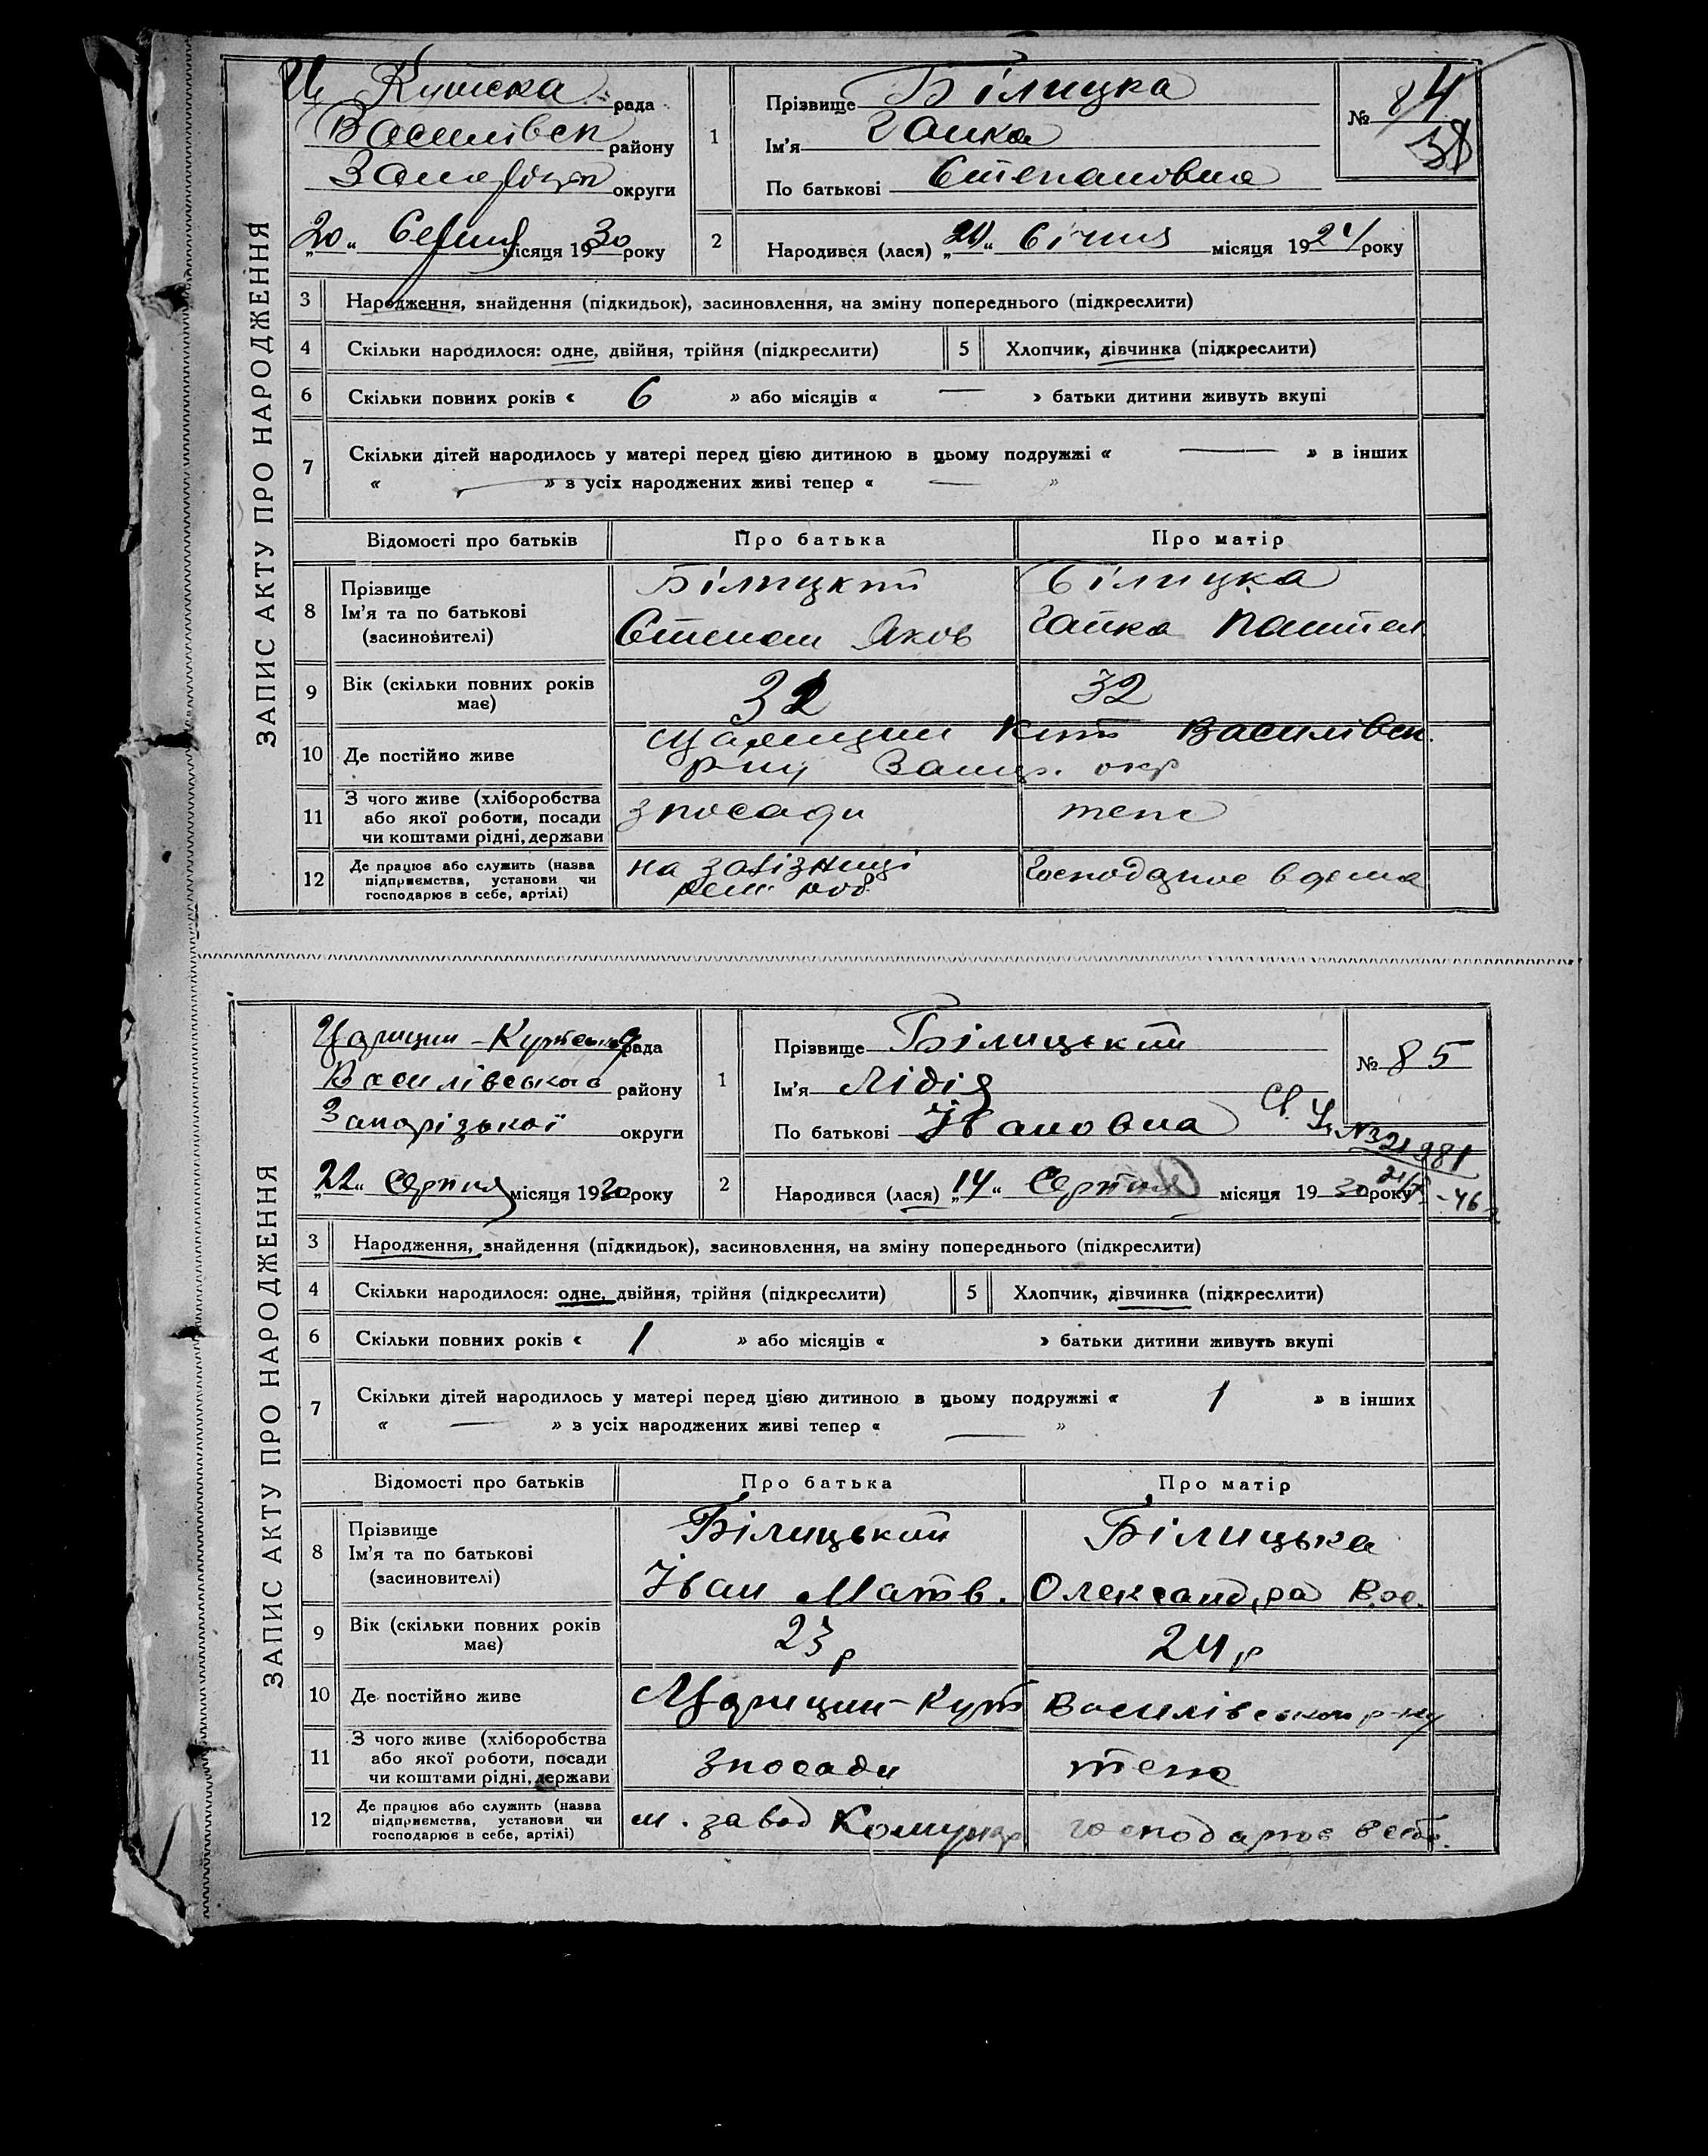 ЗАПИС АКТУ ПРО НАРОДЖЕННЯ
Ц Кутська рада
Василівськ району
округи
„20“ Серпня місяця 1930 року
1
Прізвище Білицка
Ім'я Галка
По батькові Степановна
№ 84
38
2
Народився (лася) „20“ Січня місяця 1924 року
3 Народження, знайдення (підкидьок), засиновлення, на зміну попереднього (підкреслити)
4 Скільки народилося: одне, двійня, трійня (підкреслити)
5 Хлопчик, дівчинка (підкреслити)
6 Скільки повних років « 6 » або місяців « — » батьки дитини живуть вкупі
7 Скільки дітей народилось у матері перед цією дитиною в цьому подружжі « — » в інших
« — » з усіх народжених живі тепер « — »
Відомості про батьків Про батька Про матір
8 Прізвище
Ім'я та по батькові
(засиновителі)
Білицкий
Степан Яков
Білицка
Галка
9 Вік (скільки повних років
має)
32
32
10 Де постійно живе
Царицин Кут Василівск.
р-ну Запор. окр
11 З чого живе (хліборобства
або якої роботи, посади
чи коштами рідні, держави
з посади
теж
12 Де працює або служить (назва
підприємства, установи чи
господарює в себе, артілі)
на залізниці
рем роб.
Господарює вдома
ЗАПИС АКТУ ПРО НАРОДЖЕННЯ
Царицин-Кутська рада
Василівського району
Запорізької округи
„22“ Серпня місяця 1930 року
1
Прізвище Білицький
Ім'я Лідія
По батькові Івановна
№ 85
2
Народився (лася) „14“ Серпня місяця 1930 року
3 Народження, знайдення (підкидьок), засиновлення, на зміну попереднього (підкреслити)
4 Скільки народилося: одне, двійня, трійня (підкреслити)
5 Хлопчик, дівчинка (підкреслити)
6 Скільки повних років « 1 » або місяців « » батьки дитини живуть вкупі
7 Скільки дітей народилось у матері перед цією дитиною в цьому подружжі « 1 » в інших
« — » з усіх народжених живі тепер « — »
Відомості про батьків Про батька Про матір
8 Прізвище
Ім'я та по батькові
(засиновителі)
Білицький
Іван Матв.
Білицька
Олександра Вас.
9 Вік (скільки повних років
має)
23 р
24 р
10 Де постійно живе
Царицин-Кут Василівського р-ну
11 З чого живе (хліборобства
або якої роботи, посади
чи коштами рідні, держави
з посади
теж
12 Де працює або служить (назва
підприємства, установи чи
господарює в себе, артілі)
м. завод Комунар
господарює в себе.